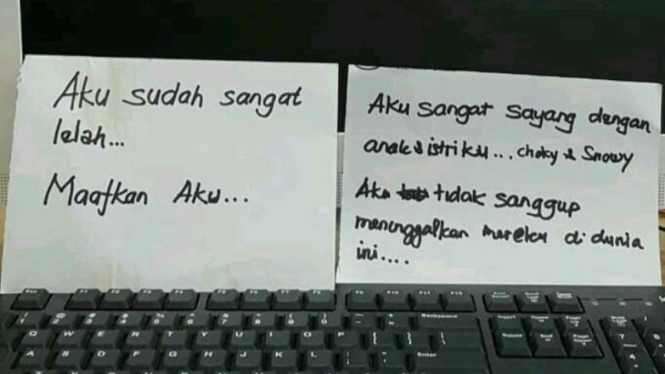 Aku sudah sangat
lelah...
Maafkan Aku...
Aku sangat sayang dengan
anak & istriku... choky & Snowy
Aku tidak sanggup
meninggalkan mereka di dunia
ini....
Backspace
Q W E R T Y U I O P
Enter
A S D F G H J K L